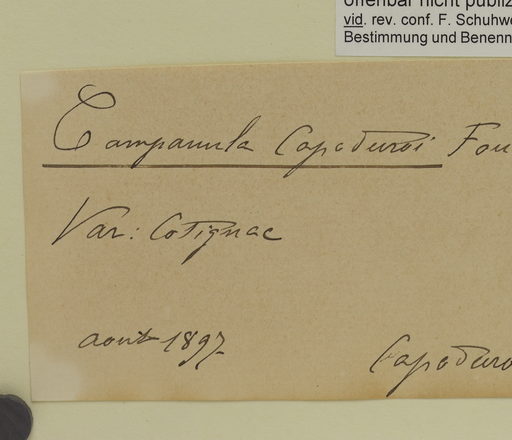 offenbar nicht publiz
vid. rev. conf. F. Schuhwe
Bestimmung und Benenn
Campanula Capoduroi Fou
Var: Cotignac
aout 1897.
Capoduro